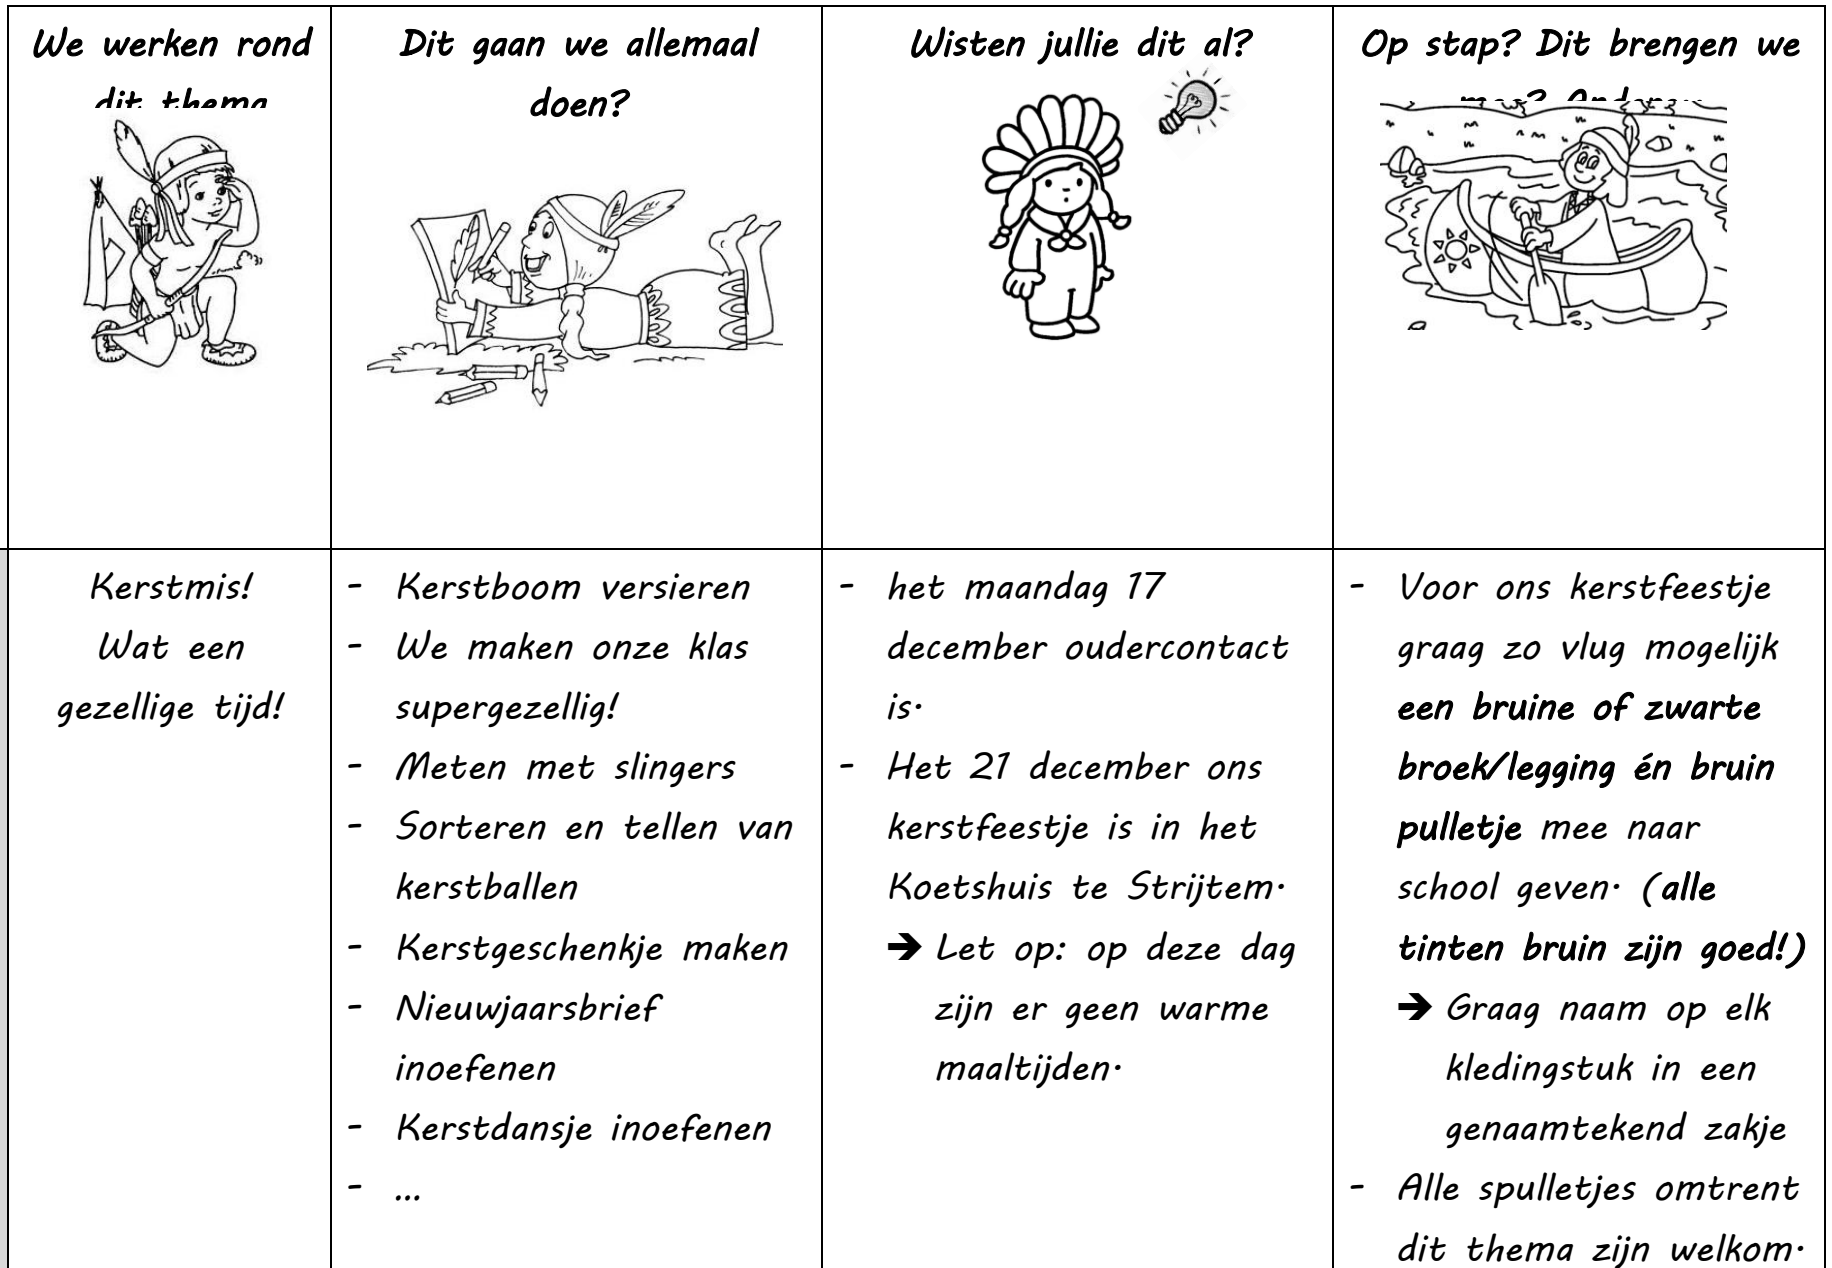 We werken rond
dit thema
Dit gaan we allemaal
doen?
Wisten jullie dit al?
Op stap? Dit brengen we
mee? Andere
Kerstmis!
Wat een
gezellige tijd!
- Kerstboom versieren
- We maken onze klas
supergezellig!
- Meten met slingers
- Sorteren en tellen van
kerstballen
- Kerstgeschenkje maken
- Nieuwjaarsbrief
inoefenen
- Kerstdansje inoefenen
- ...
- het maandag 17
december oudercontact
is.
- Het 21 december ons
kerstfeestje is in het
Koetshuis te Strijtem.
➔ Let op: op deze dag
zijn er geen warme
maaltijden.
- Voor ons kerstfeestje
graag zo vlug mogelijk
een bruine of zwarte
broek/legging én bruin
pulletje mee naar
school geven. (alle
tinten bruin zijn goed!)
➔ Graag naam op elk
kledingstuk in een
genaamtekend zakje
- Alle spulletjes omtrent
dit thema zijn welkom.